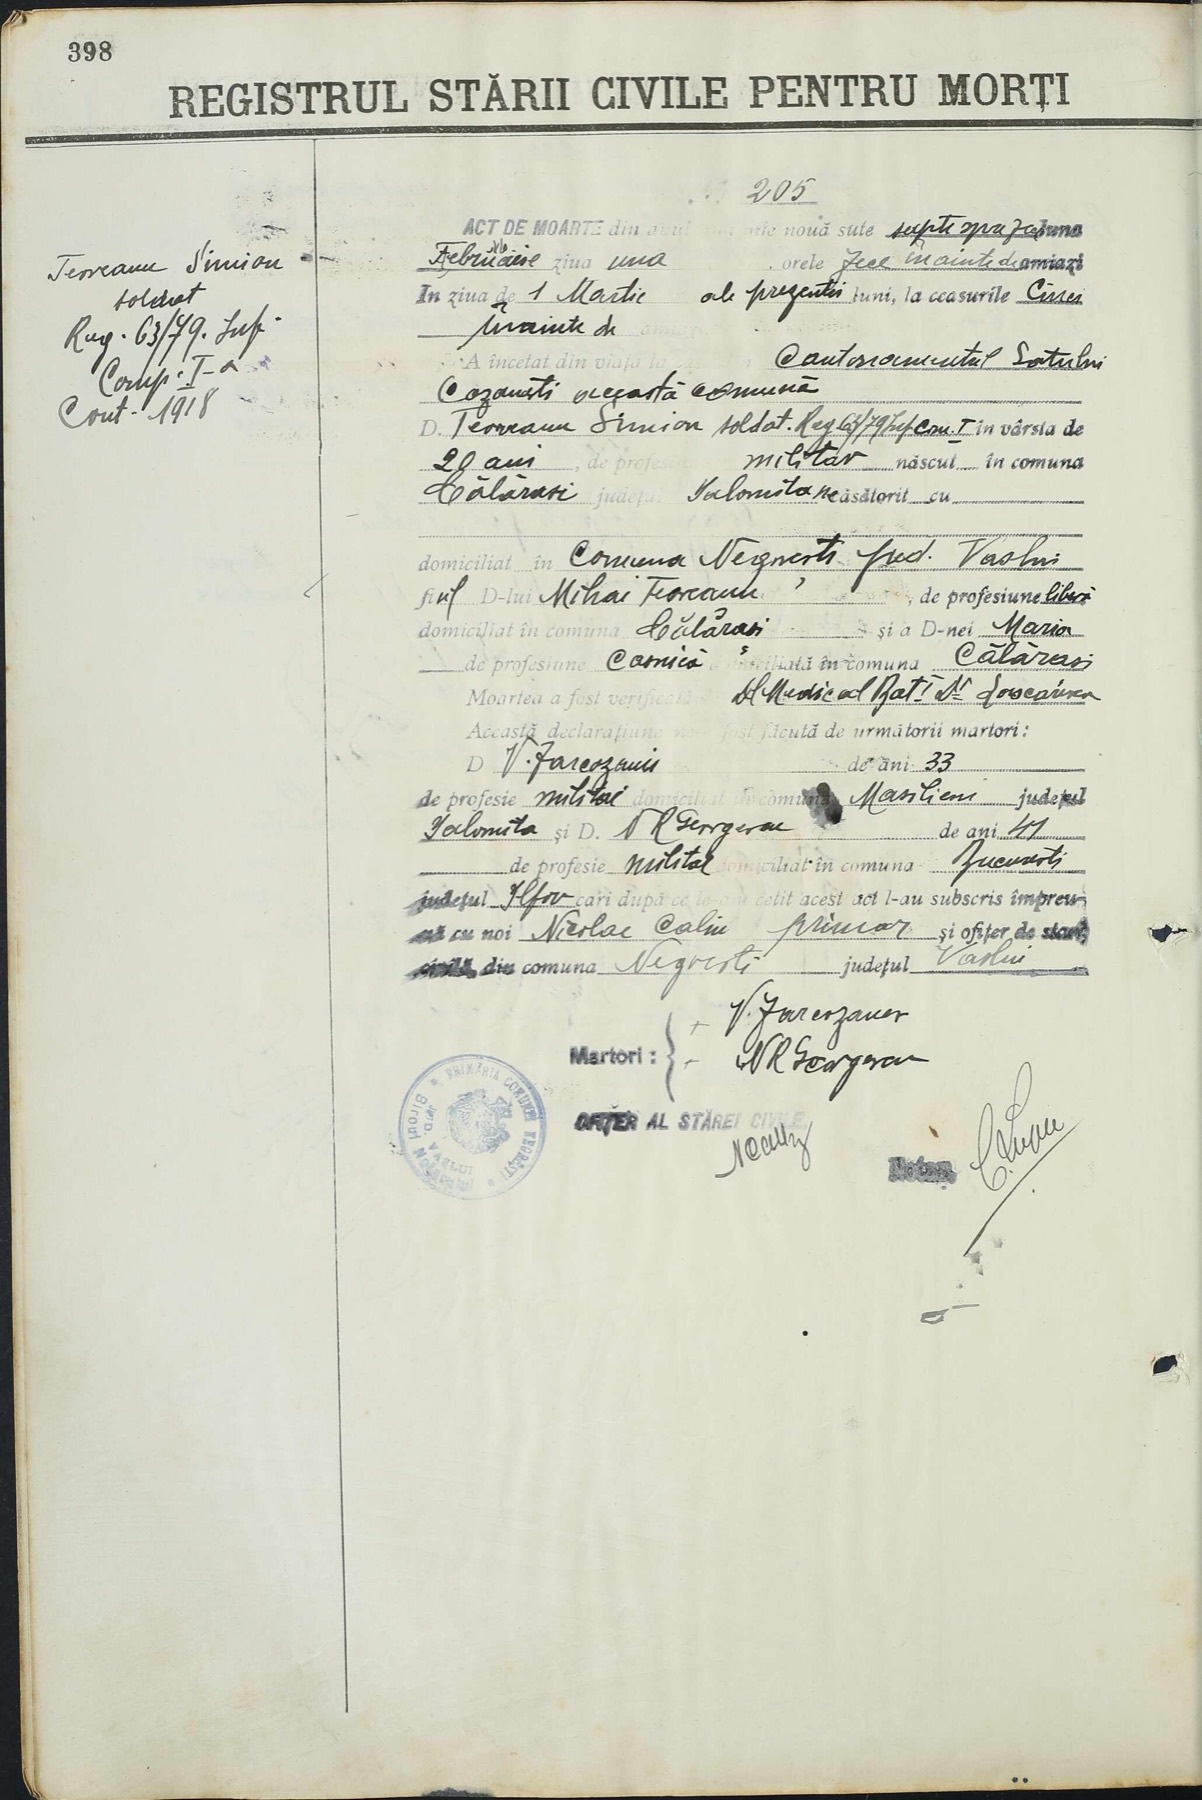 398
REGISTRUL STĂRII CIVILE PENTRU MORȚI
Teoreanu Simion
soldat
Reg. 63/79. Inf.
Comp. I-a
Cont. 1918
205
ACT DE MOARTE din anul nouă sute septe spre zece luna
Februarie ziua una orele zece înainte de amiazi
In ziua de 1 Martie ale prezentei luni, la ceasurile Cinci
înainte de
A încetat din viață la Cantonamentul Satului
Cozanești această comună
D. Teoreanu Simion soldat. Reg 63/79 Inf Com. I în vârsta de
20 ani, de profesie militar născut în comuna
Călărasi județul Ialomita necăsătorit cu
domiciliat în Comuna Negresti jud. Vaslui
fiul D-lui Mihai Teoreanu, de profesiune liberă
domiciliat în comuna Călărasi și a D-nei Maria
de profesiune Casnică domiciliată în comuna Călărasi
Moartea a fost verificată Dl Medic al Bat I Dr
Această declarațiune ne-a fost făcută de următorii martori:
D V. de ani 33
de profesie militar domiciliat în comuna județul
Ialomita și D. N R Georgescu de ani 41
de profesie militar domiciliat în comuna Bucuresti
județul Ilfov cari după ce le-am cetit acest act l-au subscris împreu-
nă cu noi Nicolae Calin primar și ofițer de stare
civilă din comuna Negresti județul Vaslui
Martori:
N R Georgescu
OFIȚER AL STĂREI CIVILE,
Notar,
PRIMĂRIA COMUNEI NEGREȘTI
JUD. VASLUI
Biroul Notarului